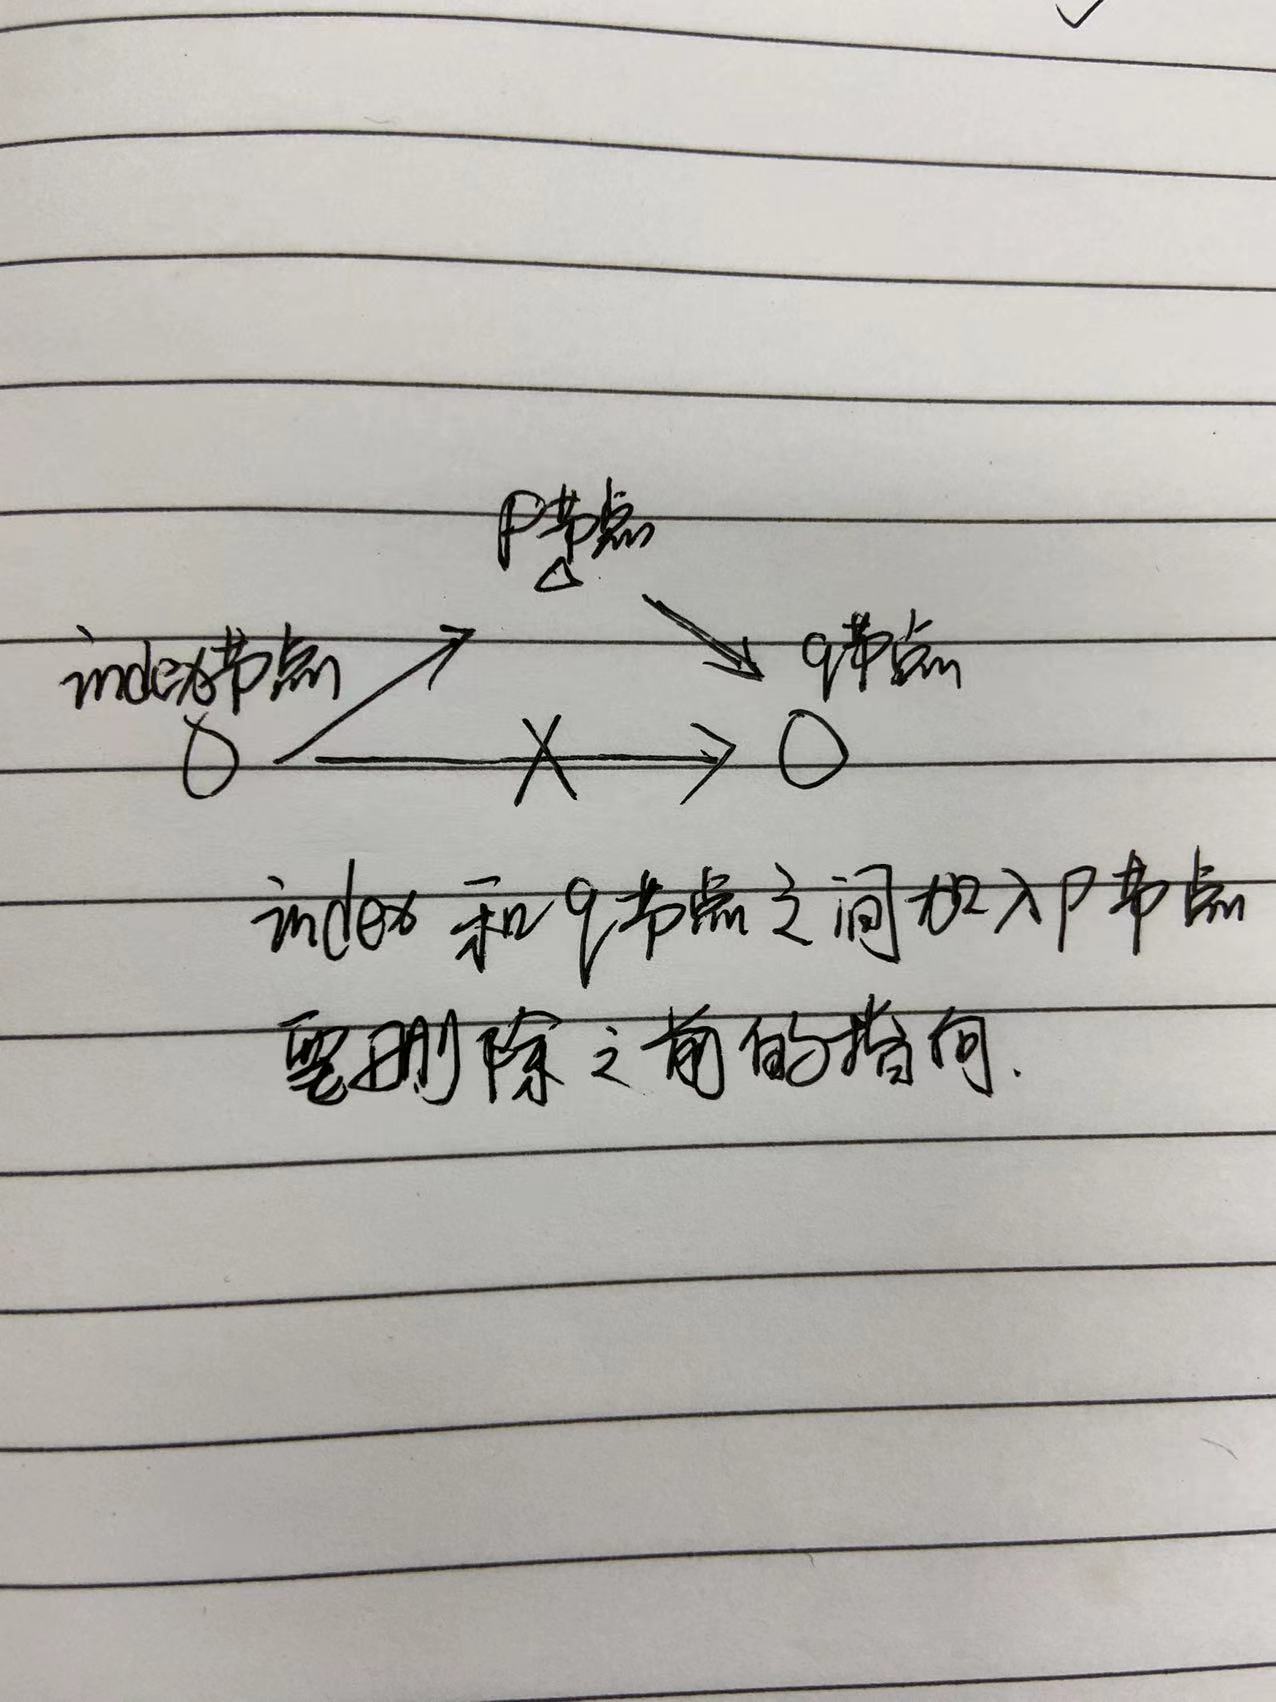 P节点
index节点
q节点
index 和 q节点之间加入P节点
要删除之前的指向.